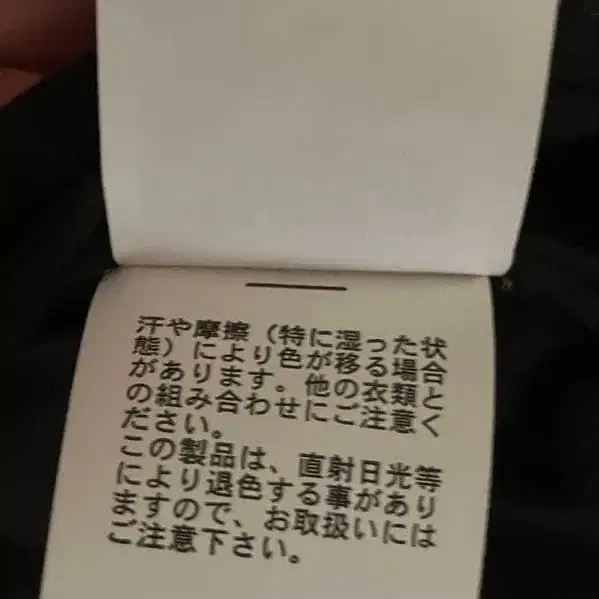 汗や摩擦（特に湿った状
態）により色が移る場合
があります。他の衣類と
の組み合わせにご注意く
ださい。
この製品は、直射日光等
により退色する事があり
ますので、お取扱いには
ご注意下さい。